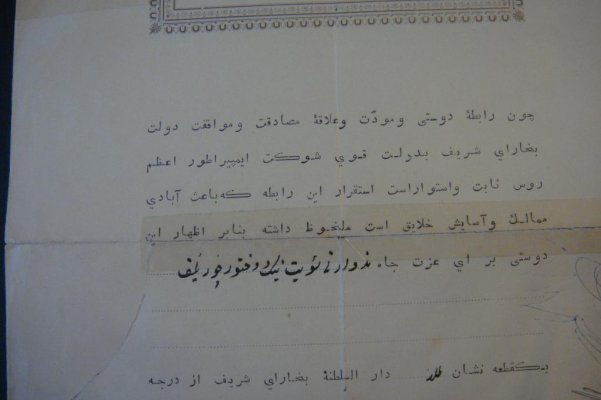 چون رابطهٔ دوستی ومودّت وعلاقهٔ مصادقت وموافقت دولت
بخارای شریف بدولت قوي شوکت ایمپیراطور اعظم
روس ثابت واستواراست استقرار این رابطه که‌باعث آبادي
ممالك وآسایش خلایق است ملحوظ داشته بنابر اظهار این
دوستی بر اي عزت جاه
یکقطعه نشان طلا دار السلطنهٔ بخارای شریف از درجه